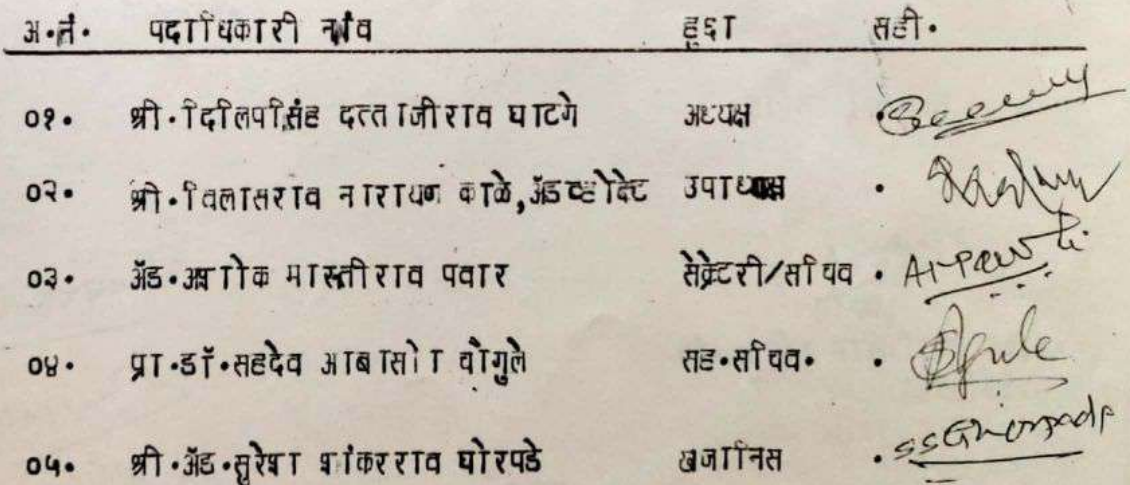 अ.नं. पदाधिकारी नांव हुद्दा सही.
०१. श्री.दिलिपसिंह दत्ताजीराव घाटगे अध्यक्ष
०२. श्री.विलासराव नारायण काळे,ॲडव्होकेट उपाध्यक्ष .
०३. ॲड.अशोक मारुतीराव पवार सेक्रेटरी/सचिव .
०४. प्रा.डॉ.सहदेव आबासो चौगुले सह.सचिव. .
०५. श्री.ॲड.सुरेश शंकरराव घोरपडे खजानिस . SSGhorpade